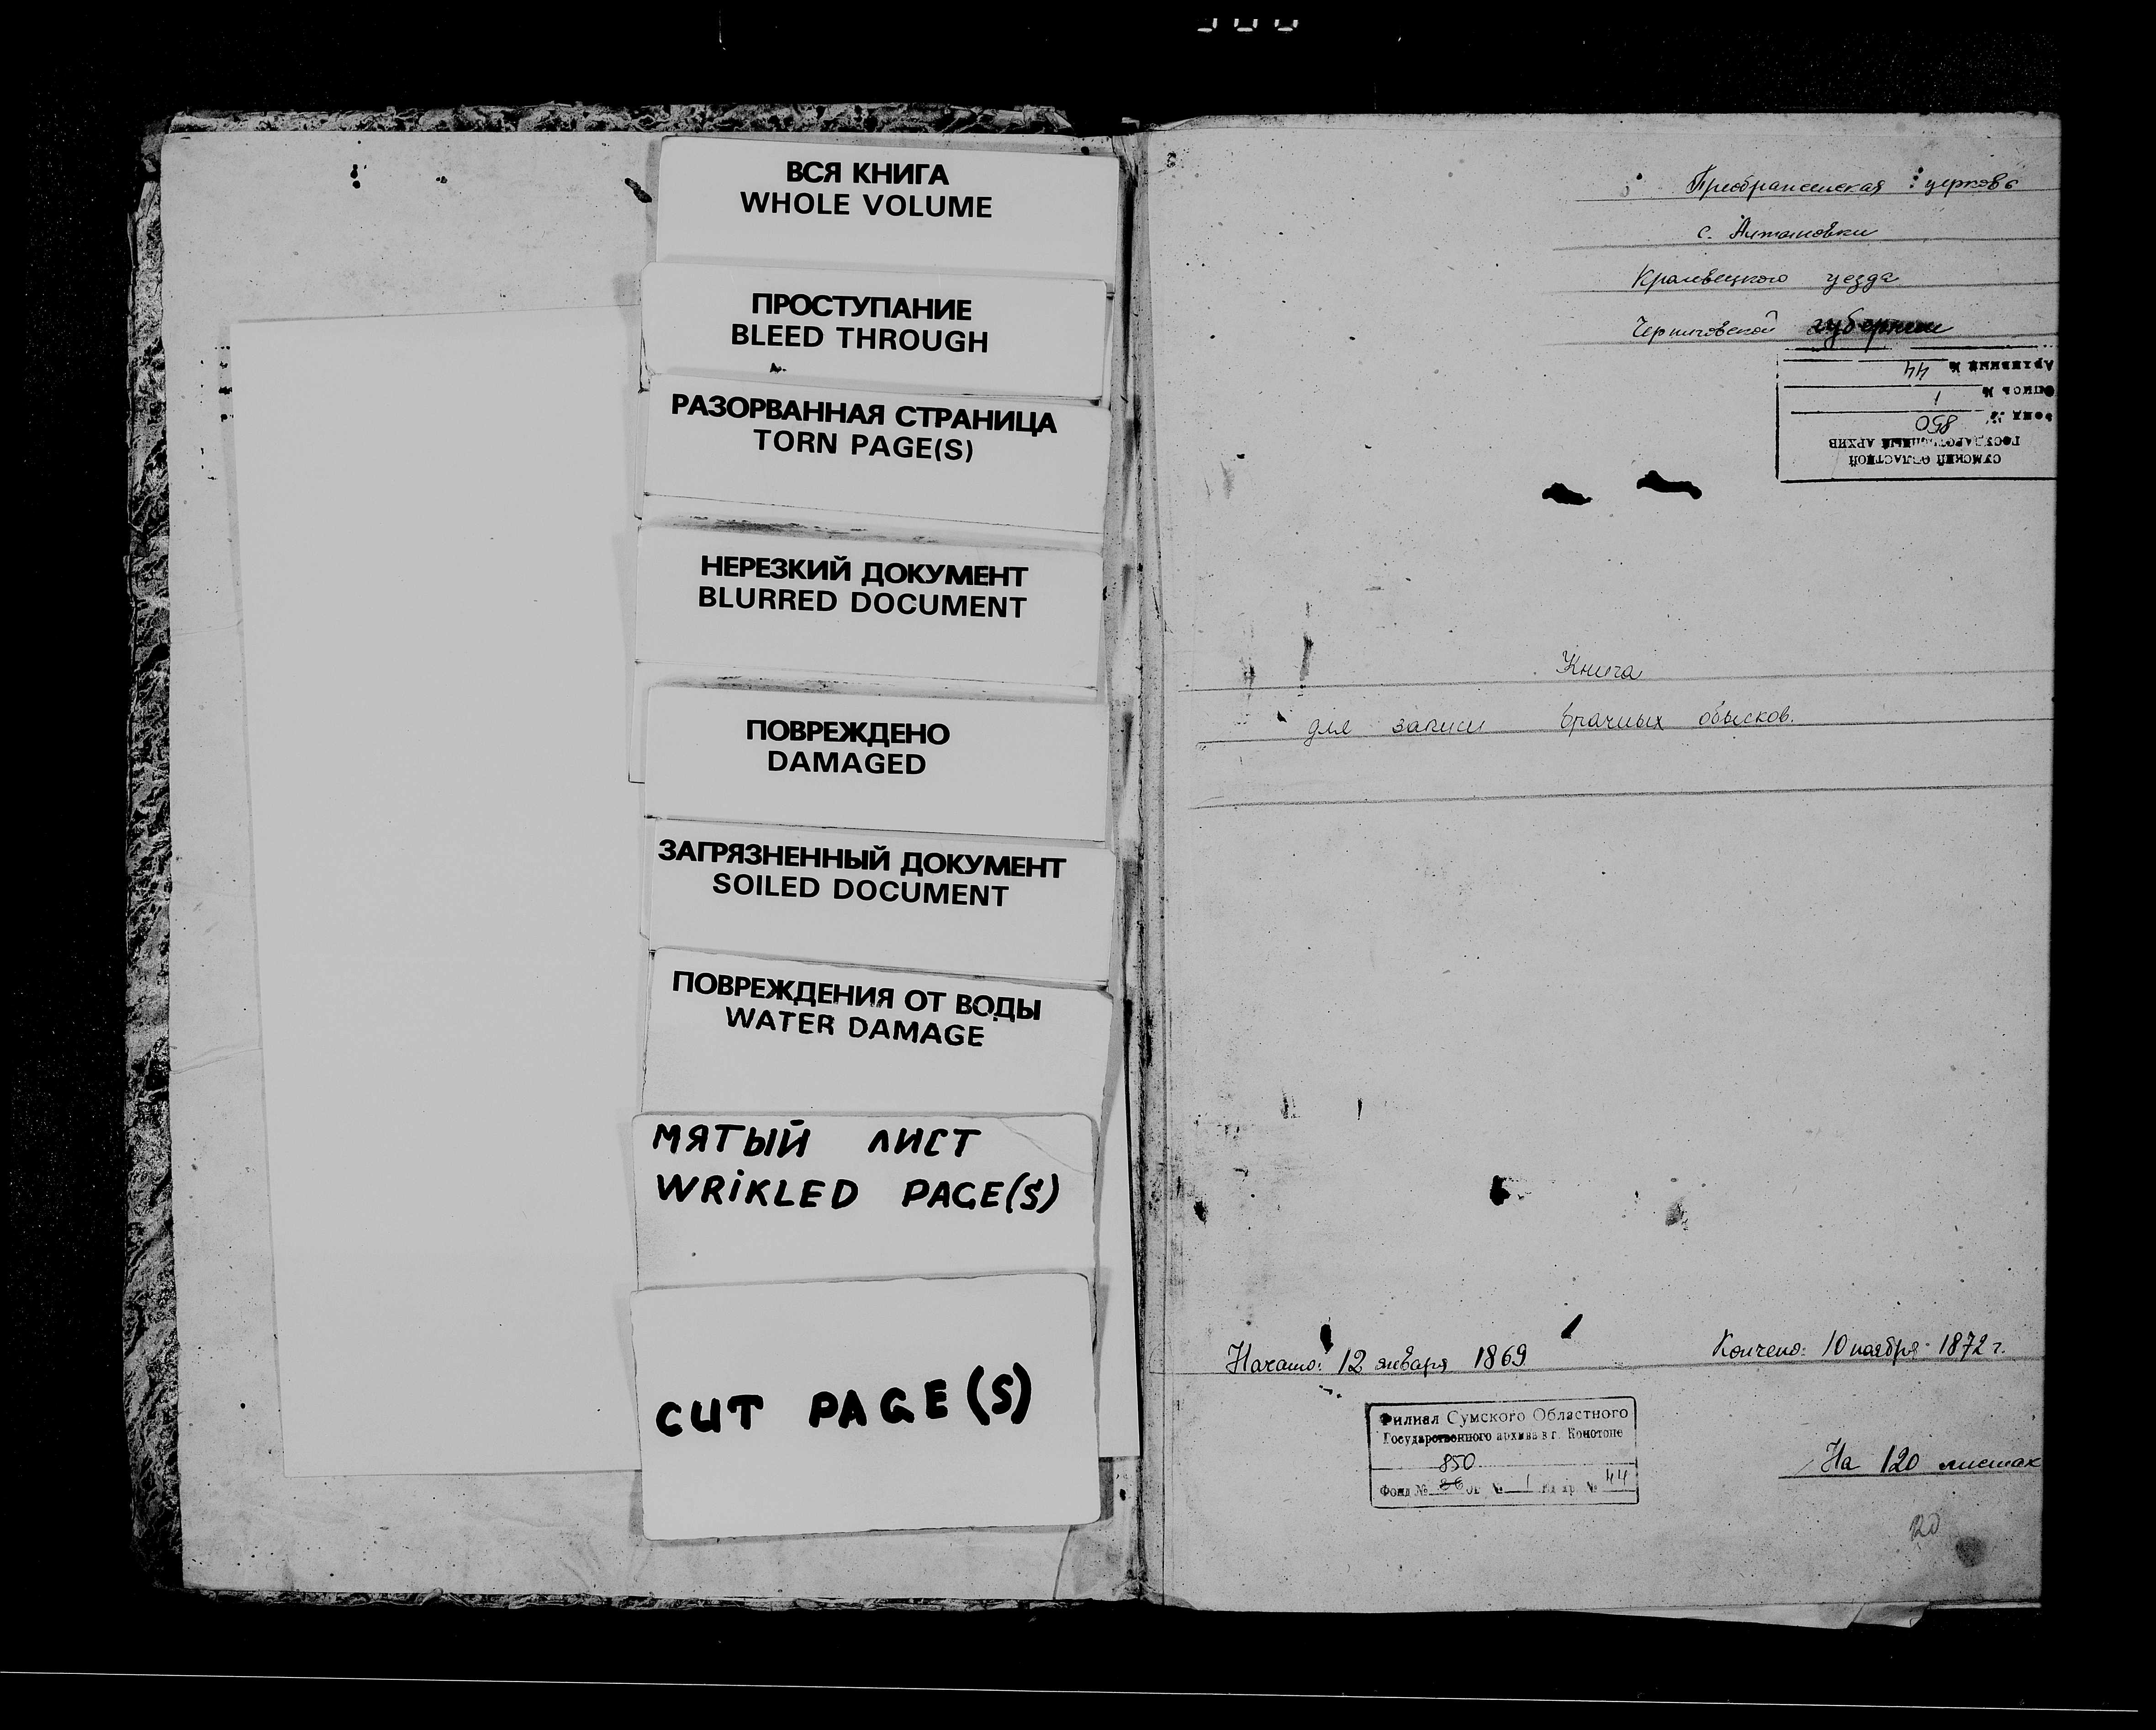 ВСЯ КНИГА
WHOLE VOLUME
ПРОСТУПАНИЕ
BLEED THROUGH
РАЗОРВАННАЯ СТРАНИЦА
TORN PAGE(S)
НЕРЕЗКИЙ ДОКУМЕНТ
BLURRED DOCUMENT
ПОВРЕЖДЕНО
DAMAGED
ЗАГРЯЗНЕННЫЙ ДОКУМЕНТ
SOILED DOCUMENT
ПОВРЕЖДЕНИЯ ОТ ВОДЫ
WATER DAMAGE
МЯТЫЙ ЛИСТ
WRIKLED PAGE(S)
CUT PAGE(S)
Преображенская церковь
с. Алтыновки
Кролевецкого уезда
Черниговской губернии
СУМСКИЙ ОБЛАСТНОЙ
ГОСУДАРСТВЕННЫЙ АРХИВ
Фонд № 850
Опись № 1
Архивный № 44
Книга
для записи брачных обысков.
Начато: 12 января 1869
Кончено: 10 ноября 1872 г.
Филиал Сумского Областного
Государственного архива в г. Конотопе
850
Фонд № 86 оп № 1 Ед хр № 44
На 120 листах
120